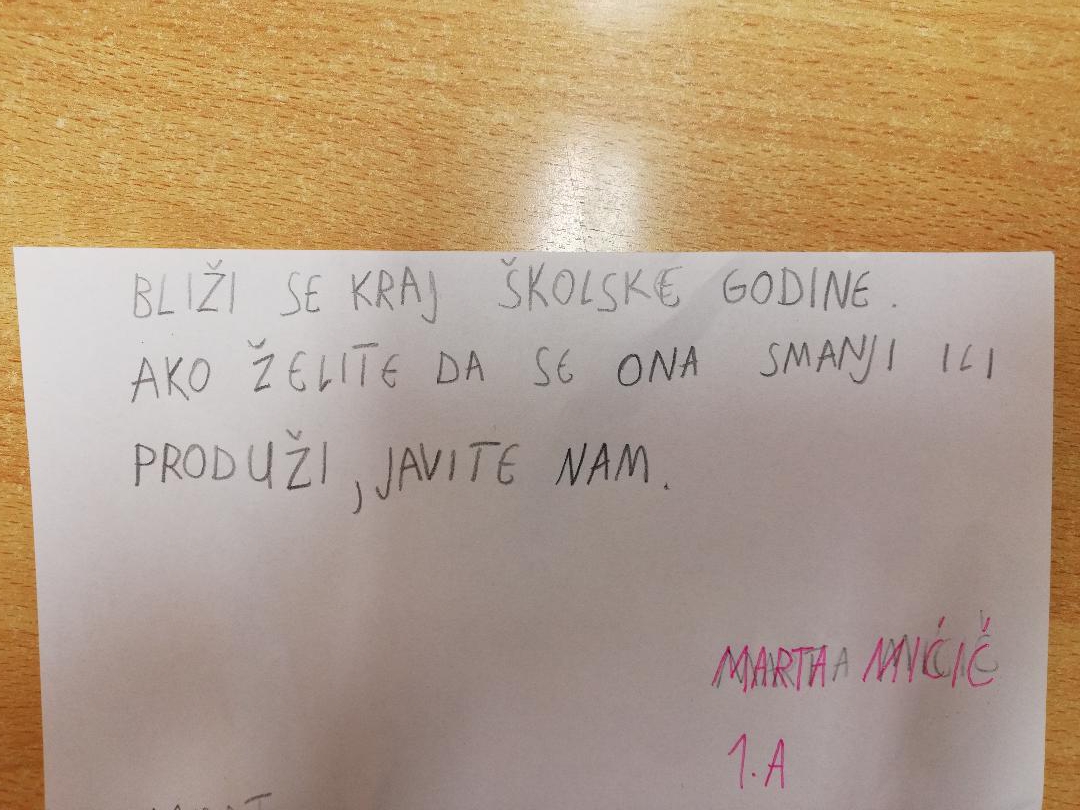 BLIŽI SE KRAJ ŠKOLSKE GODINE.
AKO ŽELITE DA SE ONA SMANJI ILI
PRODUŽI, JAVITE NAM.
MARTA
1.A